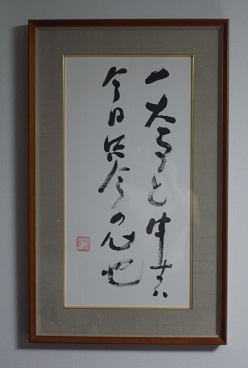 一大事と申すハ
今日只今の心也